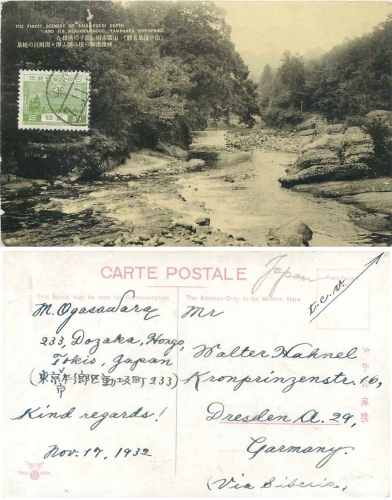 THE FINEST SCENERY OF SUGATSUCHI DEPTH
AND ITS NEIGHBOURHOOD, YAMANAKA HOT-SPRING.
CARTE POSTALE
Japan
t.c.v.
This Space may be used for Communication
The Address Only to be Written Here
M. Ogasawara
233, Dozaka, Hongo,
Tokio, Japan
(東京市本郷区動坂町233)
Kind regards!
Nov. 17, 1932
Mr
Walter Hahnel
Kronprinzenstr. 16,
Dresden A. 29,
Germany.
(Via Siberia)
きかは便郵